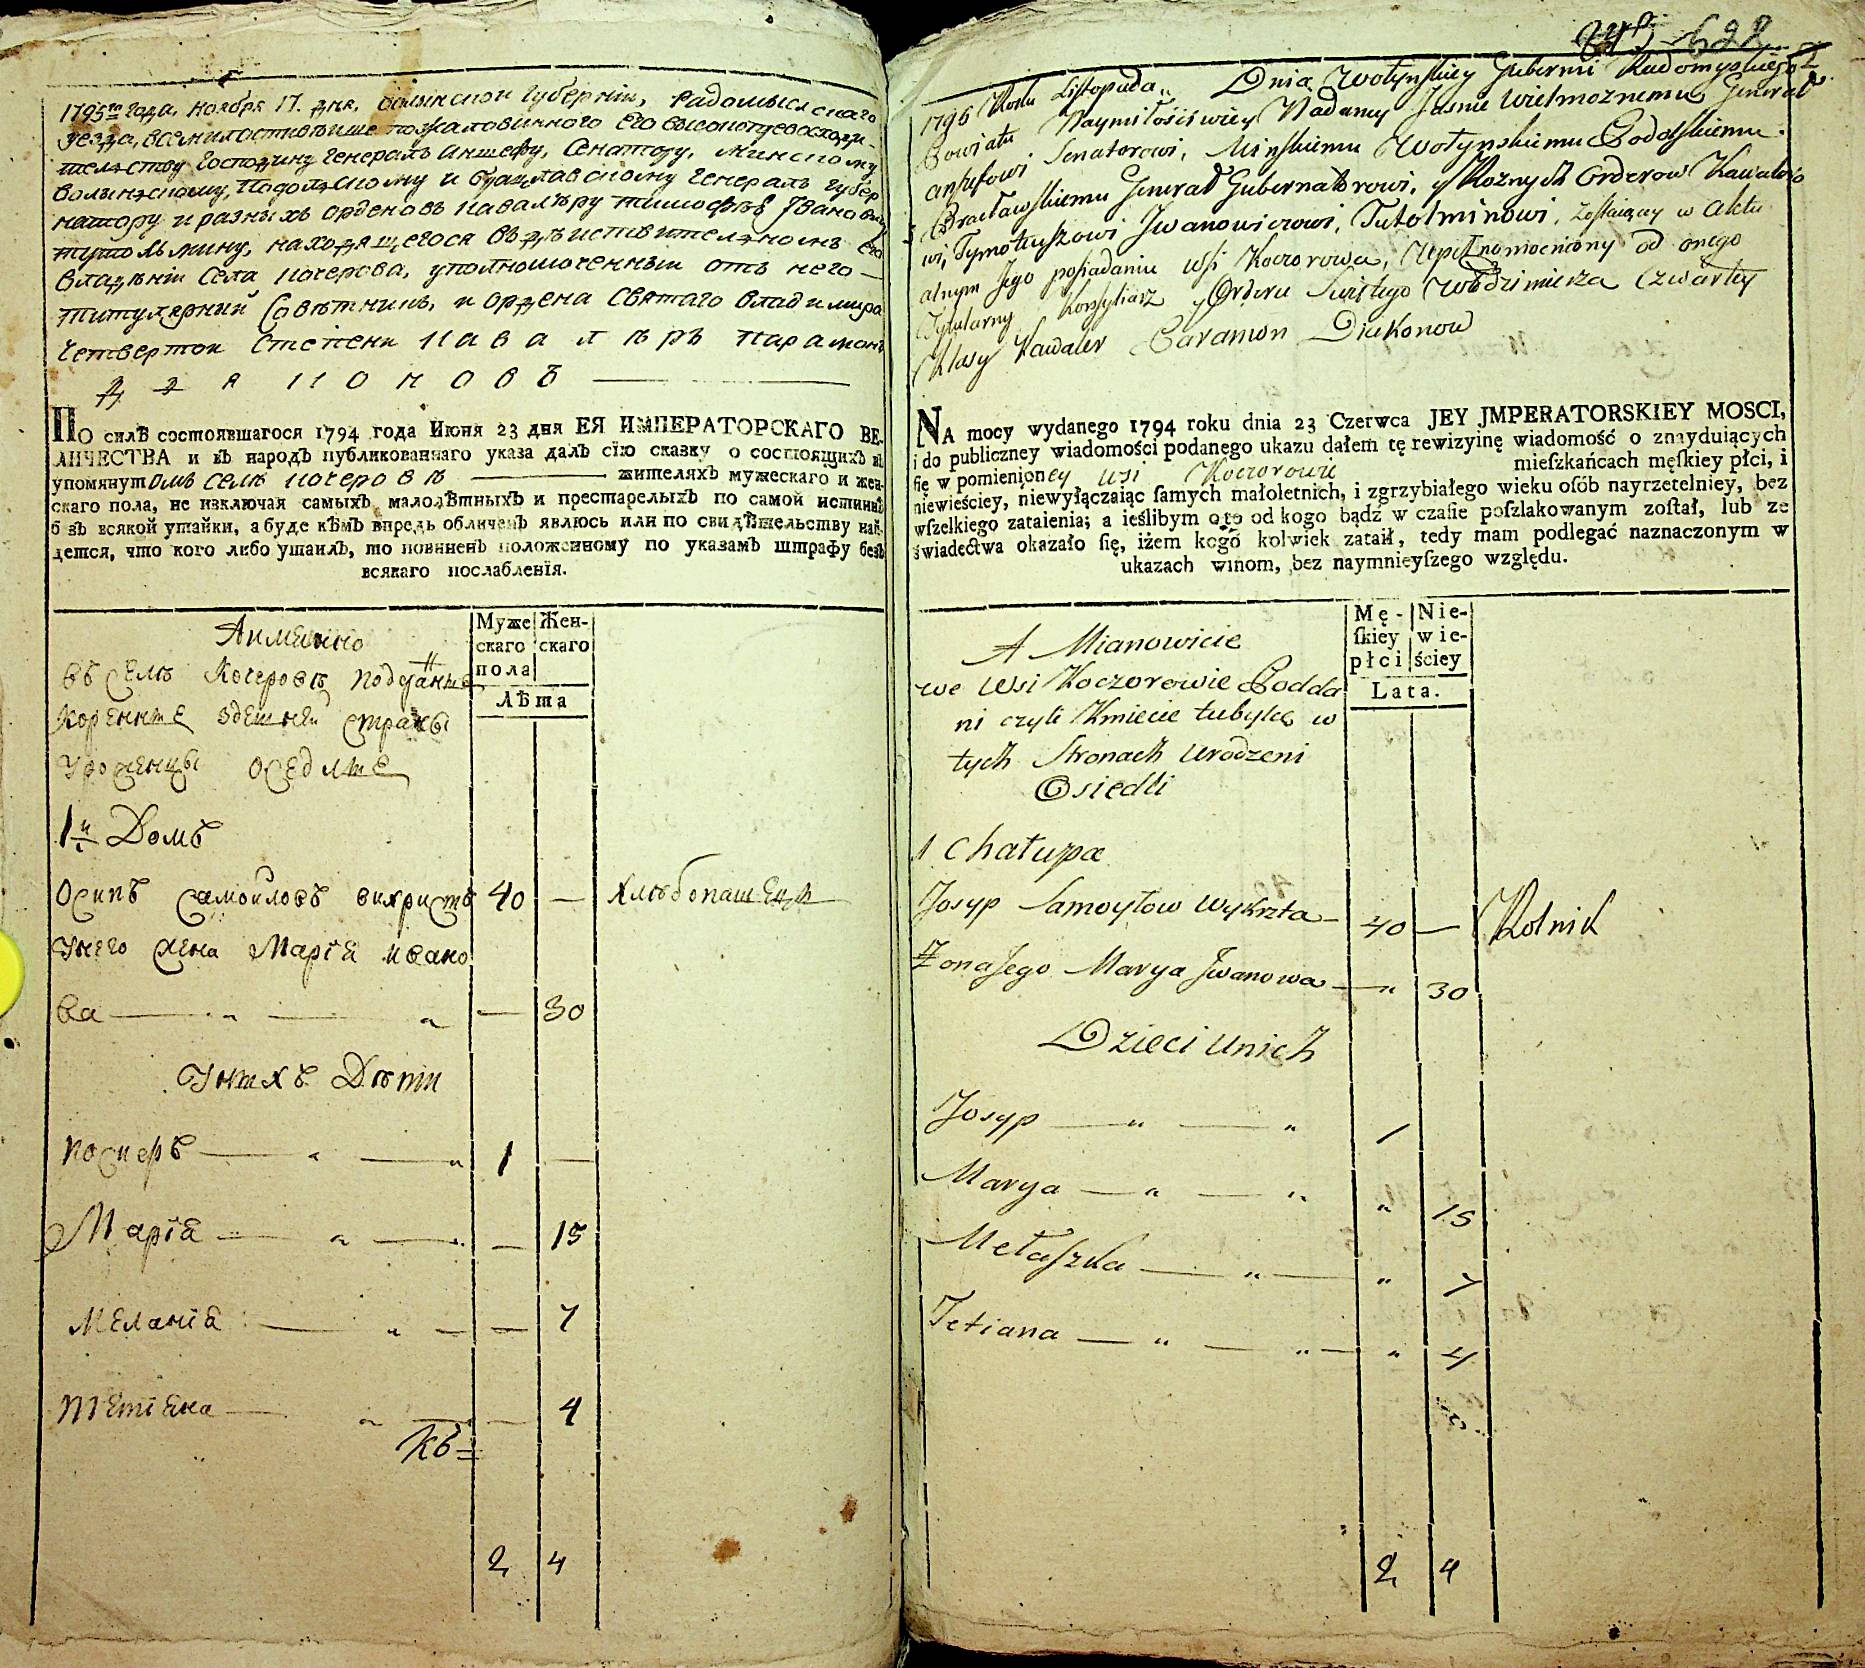 1795го года, ноября 17. дня, Волынской Губерніи, Радомысльскаго
уезда, всемилостивѣише пожалованного Его высокопревосходи-
тельству Господину Генералъ Аншефу, Сенатору, Минскому
Волынскому, Подольскому и Брацлавскому Генералъ Губер
натору и разныхъ орденовъ Кавалѣру Тимофѣю Ивановичу
Тутолмину, находящегося въ дѣиствителномъ его
владѣніи Села Кочерова, уполномоченныи отъ него —
титулярный Совѣтникъ, и ордена Святаго Владимира
Четвертои Степени Кавалѣръ Парамонъ
Дьяконовъ
ПО силѣ состоявшагося 1794 года Июня 23 дня ЕЯ ИМПЕРАТОРСКАГО ВЕ-
ЛИЧЕСТВА и въ народъ публикованнаго указа далъ сію сказку о состоящихъ въ
упомянутомъ селѣ Кочеровѣ — жителяхъ мужескаго и жен-
скаго пола, не изключая самыхъ малолѣтныхъ и престарелыхъ по самой истиннѣ
безъ всякой утайки, а буде кѣмъ впредь обличенъ явлюсь или по свидѣтельству най-
дется, что кого либо утаилъ, то повиненъ положенному по указамъ штрафу безъ
всякаго послабленія.
Муже
скаго
пола
Жен-
скаго
Лѣта
Аименно
въ Селѣ Кочеровѣ подданные
Коренные здешнеи страны
Уроженцы Оседлые
1й Домъ
Осипъ Самоиловъ вихристъ 40 — Хлебопашецъ
Унего жена Маріа Ивано
ва — „ — „ — 30
Унихъ Дѣти
Иосиеръ — „ — „ 1 —
Маріа — „ — „ — 15
Меланіа — „ — — 7
Тетіана — „ — — 4
Къ
2 4
622
2
1795 Roku Listopada „ Dnia Wołynskiey Gubernii Radomyskiego
Powiatu Naymiłościwiey Nadaney Jasnie Wielmoznemu Generał
anszefowi Senatorowi, Mińskiemu Wołynskiemu Podolskiemu
Bracławskiemu Generał Gubernatorowi, y Roznych Orderow Kawalero
wi, Tymoteuszowi Jwanowiczowi, Tutolminowi, zostaiącey w aktu
alnym Jego posiadaniu wsi Koczorowa, Upełnomocniony od onego
Tytularny Konsyliarz y Orderu Swiętego Włodzimierza Czwartey
Klasy Kawaler Paramon Diakonow
NA mocy wydanego 1794 roku dnia 23 Czerwca JEY JMPERATORSKIEY MOSCI,
i do publiczney wiadomości podanego ukazu dałem tę rewizyinę wiadomość o znayduiących
ſię w pomienioney wsi Koczorowie mieſzkańcach męſkiey płci, i
niewieściey, niewyłączaiąc ſamych małoletnich, i zgrzybiałego wieku osób nayrzetelniey, bez
wſzelkiego zataienia; a ieślibym o to od kogo bądź w czaſie poſzlakowanym zoſtał, lub ze
świadectwa okazało ſię, iżem kogo kolwiek zataił, tedy mam podlegać naznaczonym w
ukazach winom, bez naymnieyſzego względu.
Mę-
ſkiey
płci
Nie-
wie-
ściey
Lata.
A Mianowicie
we Wsi Koczorowie Podda
ni czyli Kmiecie tubylcy w
tych Stronach Urodzeni
Osiedli
1 Chałupa
Josyp Samoyłow Wykrzta — 40 — Rolnik
Żona Jego Marya Jwanowa — „ 30
Dzieci Unich
Josyp — „ — „ 1
Marya — „ — „ „ 15
Mełaszka — „ — „ 7
Tetiana — „ — „ — „ 4
2 4